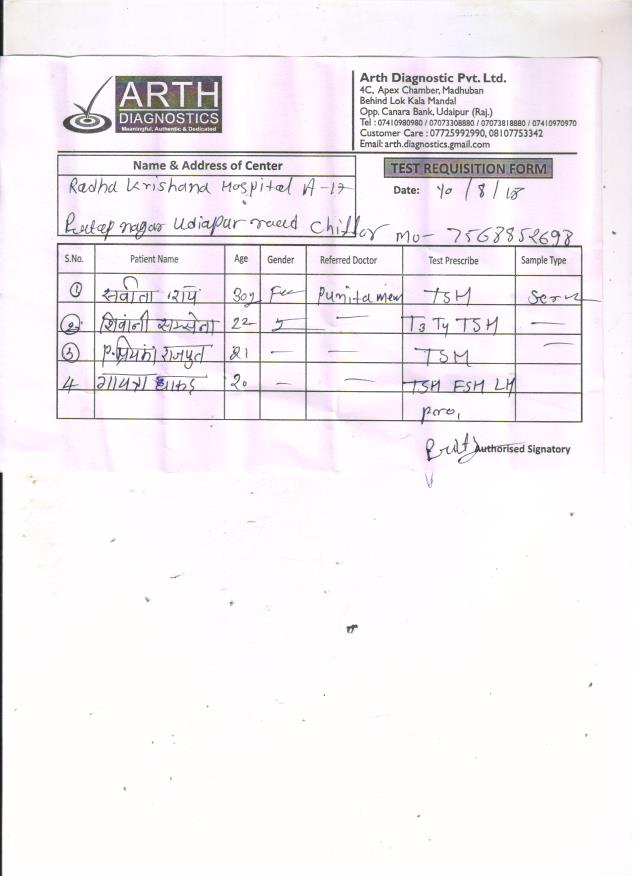 ARTH
DIAGNOSTICS
Meaningful, Authentic & Dedicated
Arth Diagnostic Pvt. Ltd.
4C, Apex Chamber, Madhuban
Behind Lok Kala Mandal
Opp. Canara Bank, Udaipur (Raj.)
Tel : 07410980980 / 07073308880 / 07073818880 / 07410970970
Customer Care : 07725992990, 08107753342
Email: arth.diagnostics.gmail.com
Name & Address of Center
TEST REQUISITION FORM
Radha Krishana Hospital A-12
Date: 10 / 8 / 18
nagar Udiapur Chittor mo- 7568852698
S.No. Patient Name Age Gender Referred Doctor Test Prescribe Sample Type
1 30y Fe Punita mem TSH
2 शिवानी 22 T3 T4 TSH —
3 राजपुत 21 — — TSH
4 20 — — TSH FSH LH
Authorised Signatory